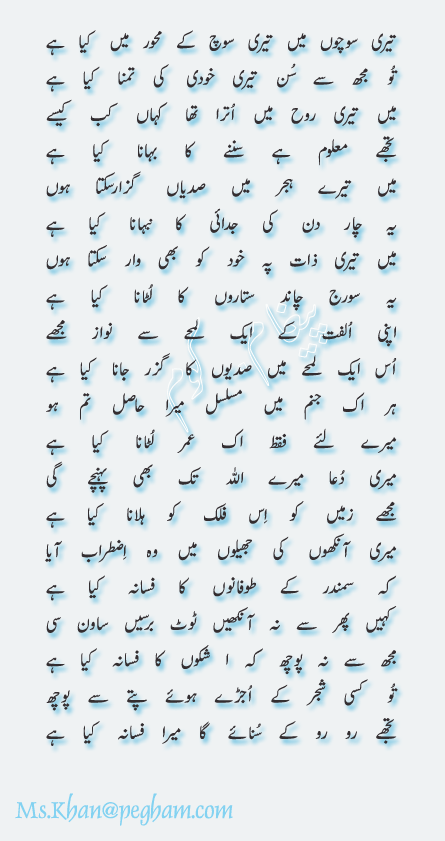 تیری سوچوں میں تیری سوچ کے محور میں کیا ہے
تُو مجھ سے سُن تیری خودی کی تمنا کیا ہے
میں تیری روح میں اُترا تھا کہاں کب کیسے
تجھے معلوم ہے سننے کا بہانا کیا ہے
میں تیرے ہجر میں صدیاں گزارسکتا ہوں
یہ چار دن کی جدائی کا نبہانا کیا ہے
میں تیری ذات پہ خود کو بھی وار سکتا ہوں
یہ سورج چاند ستاروں کا لُٹانا کیا ہے
اپنی اُلفت کے ایک لمحے سے نواز مجھے
اُس ایک لمحے میں صدیوں کا گزر جانا کیا ہے
ہر اک جنم میں مسلسل میرا حاصل تم ہو
میرے لئے فقط اک عمر لُٹانا کیا ہے
میری دُعا میرے اللہ تک بھی پہنچے گی
مجھے زمیں کو اِس فلک کو ہلانا کیا ہے
میری آنکھوں کی جھیلوں میں وہ اِضطراب آیا
کہ سمندر کے طوفانوں کا فسانہ کیا ہے
کہیں پھر سے نہ آنکھیں ٹوٹ برسیں ساون سی
مجھ سے نہ پوچھ کہ ا شکوں کا فسانہ کیا ہے
تُو کسی شجر کے اُجڑے ہوئے پتے سے پوچھ
تجھے رو رو کے سُنائے گا میرا فسانہ کیا ہے
پیغام ڈوٹ کوم
Ms.Khan@pegham.com